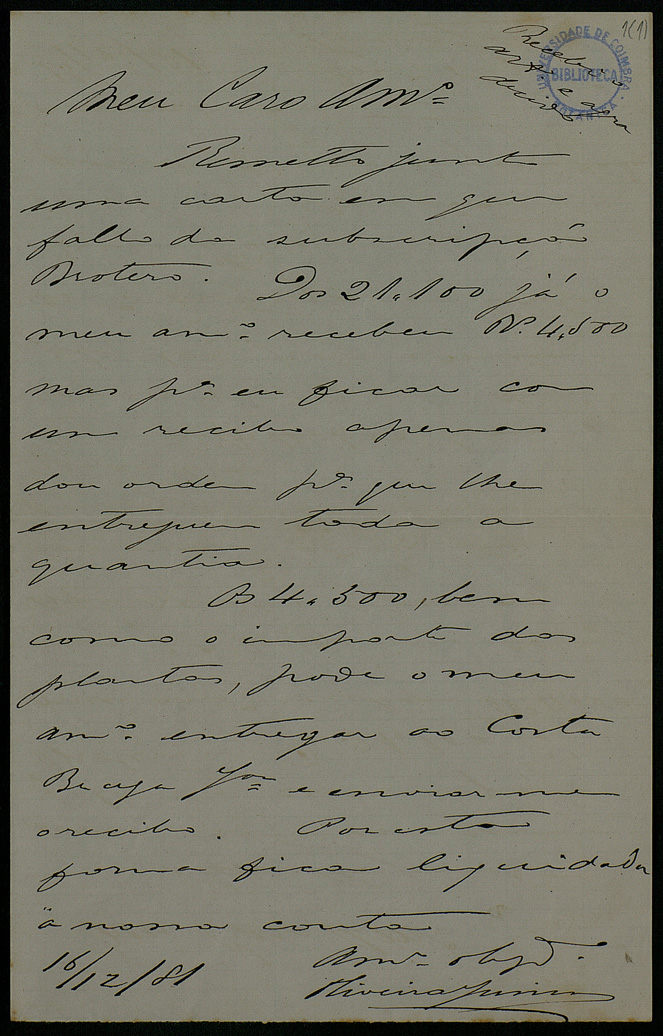 1(1)
Recebi o
e agra
UNIVERSIDADE DE COIMBRA
BIBLIOTECA
BOTANICA
Meu Caro Amº
Remetto junto
uma carta em que
fallo da subscripção
Brotero. Dos 21.100 já o
meu amº recebeu Rs. 4.500
mas pª eu ficar com
um recibo apenas
dou ordem pª que lhe
entreguem toda a
quantia.
Os 4.500, bem
como o importe das
plantas, pode o meu
amº entregar ao Costa
Braga Jor e enviar-me
o recibo. Por esta
forma fica liquidada
a nossa conta
16/12/81
Amº obgdº
Oliveira Junior